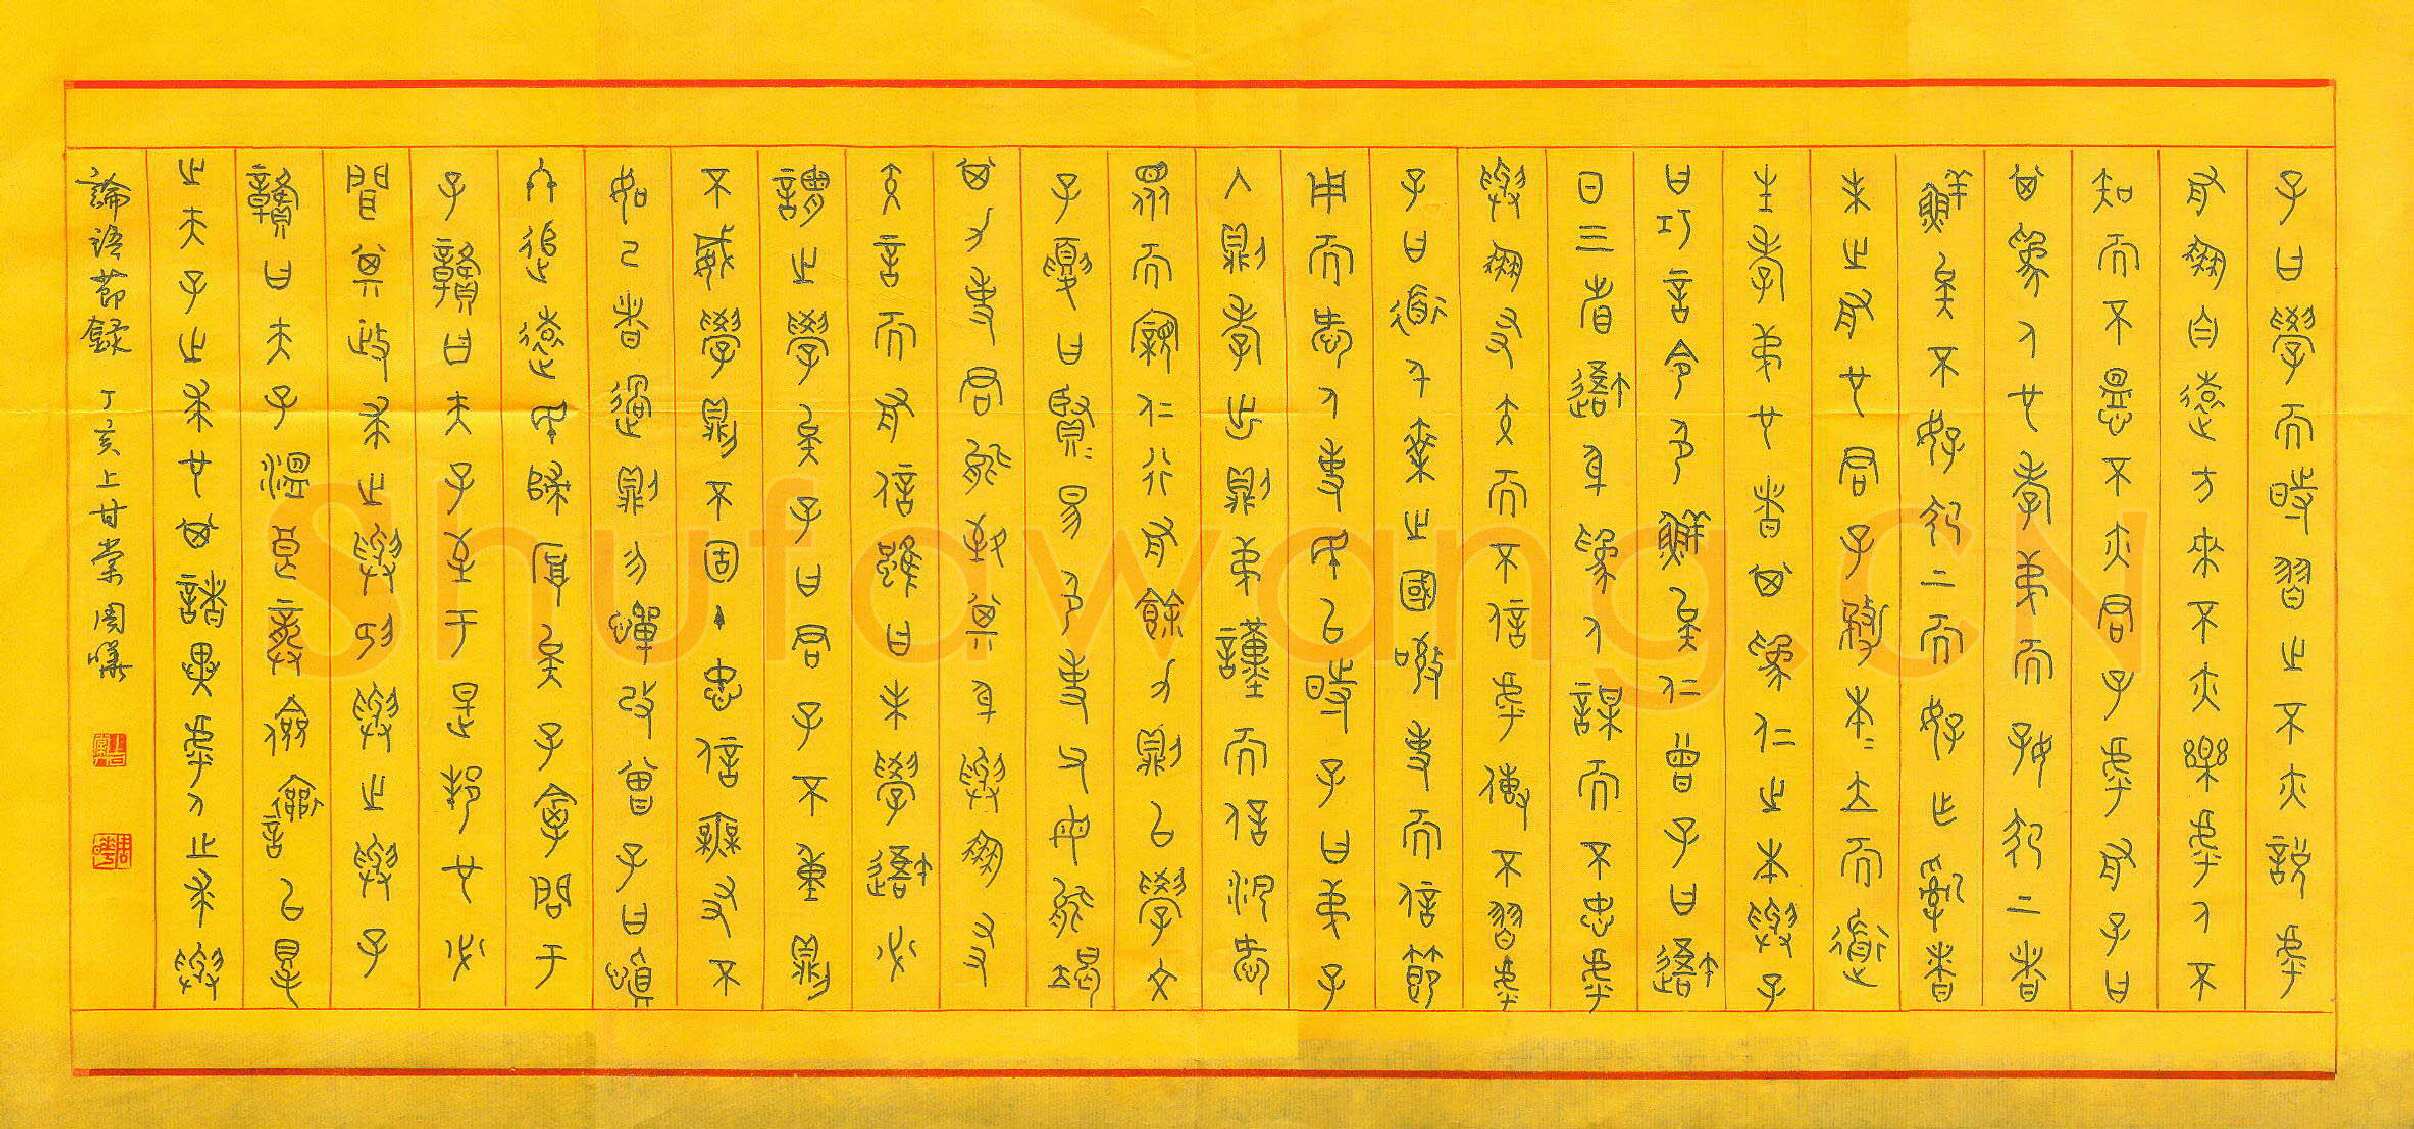 子曰學而時習之不亦說乎
有朋自遠方來不亦樂乎人不
知而不慍不亦君子乎有子曰
其為人也孝弟而好犯上者
鮮矣不好犯上而好作亂者
未之有也君子務本=立而道
生孝弟也者其為仁之本與子
曰巧言令色鮮矣仁曾子曰吾
日三省吾身為人謀而不忠乎
與朋友交而不信乎傳不習乎
子曰道千乘之國敬事而信節
用而愛人使民以時子曰弟子
入則孝出則弟謹而信汎愛
眾而親仁行有餘力則以學文
子夏曰賢=易色事父母能竭
其力事君能致其身與朋友
交言而有信雖曰未學吾必
謂之學矣子曰君子不重則
不威學則不固主忠信無友不
如己者過則勿憚改曾子曰慎
終追遠民歸厚矣子禽問于
子贛曰夫子至于是邦也必
聞其政求之與抑與之與子
贛曰夫子溫良恭儉讓以得
之夫子之求也其諸異乎人之求與
論語節錄 丁亥上甘棠周曄
Shufawang.CN